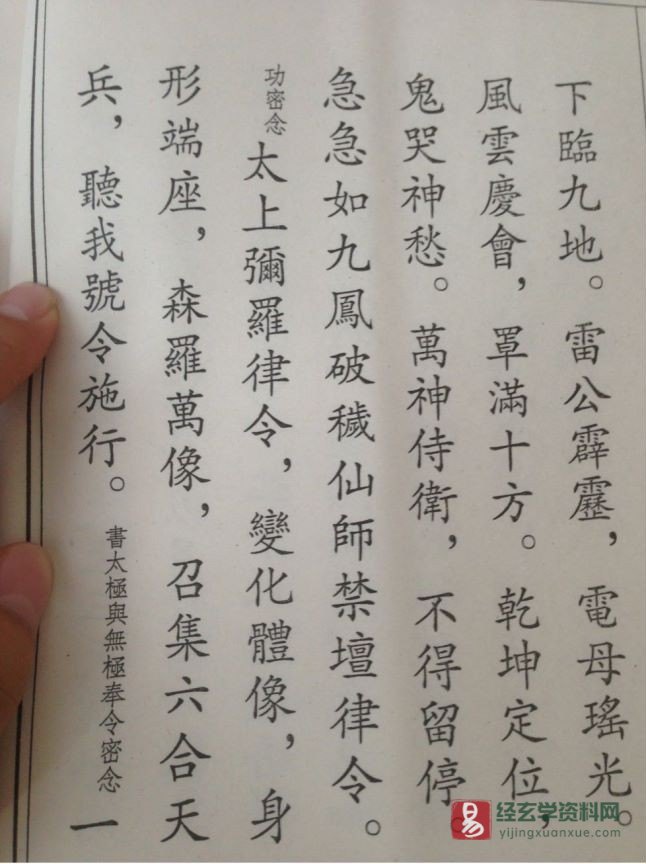 下臨九地。雷公霹靂，電母瑤光。
風雲慶會，罩滿十方。乾坤定位，
鬼哭神愁。萬神侍衛，不得留停
急急如九鳳破穢仙師禁壇律令。
功密念太上彌羅律令，變化體像，身
形端座，森羅萬像，召集六合天
兵，聽我號令施行。書太極與無極奉令密念一
易 经玄学资料网
yijingxuanxue.com